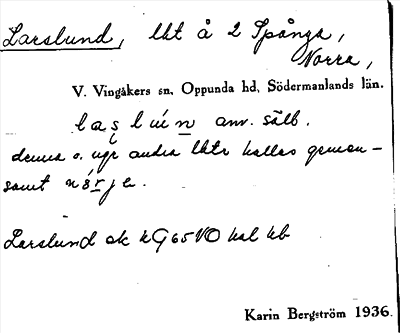 Larslund, lht å 2 Spånga,
Norra,
V. Vingåkers sn, Oppunda hd, Södermanlands län.
anv. sälb.
denna o. ngr andra lhtr kallas gemen-
samt
Larslund ek kG 65 VO hal kb
Karin Bergström 1936.